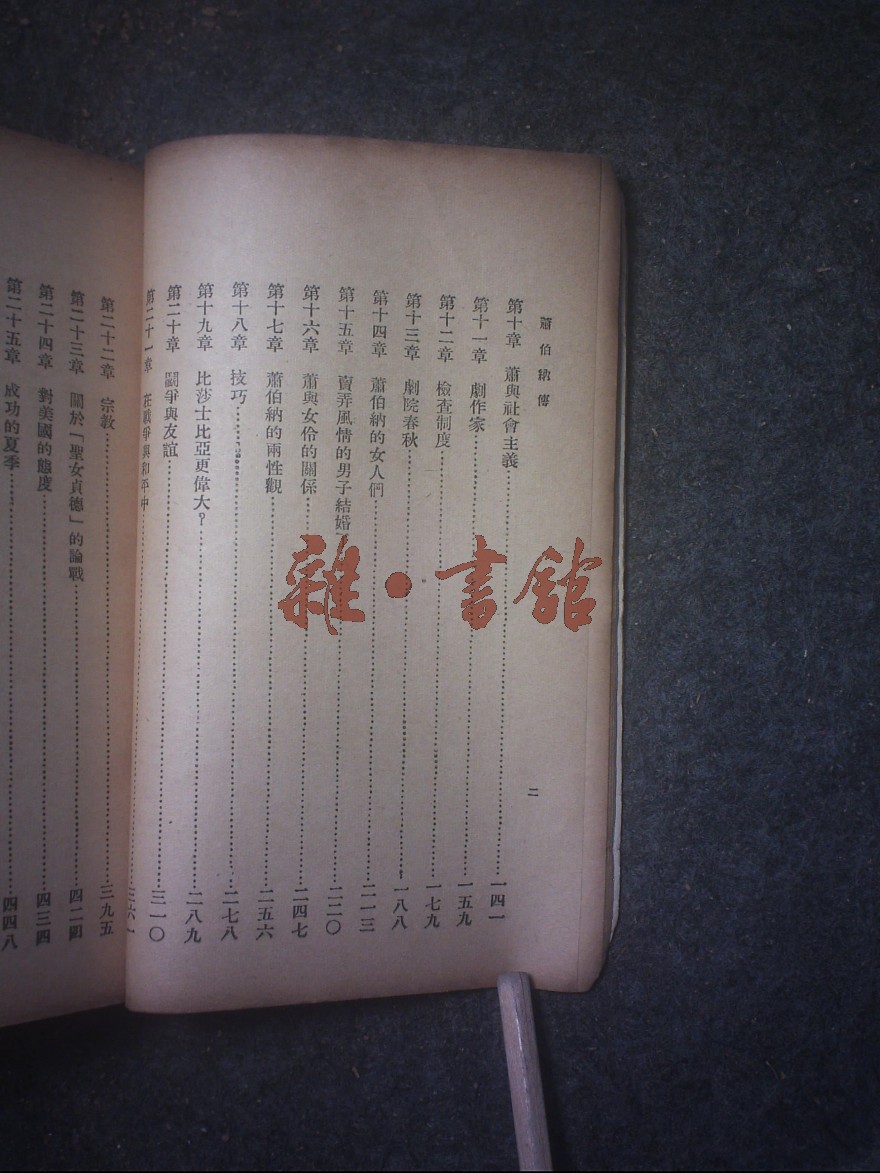 蕭伯納傳
二
第十章 蕭與社會主義……一四一
第十一章 劇作家……一五九
第十二章 檢查制度……一七九
第十三章 劇院春秋……一八八
第十四章 蕭伯納的女人們……二一三
第十五章 賣弄風情的男子結婚……二二〇
第十六章 蕭與女伶的關係……二四七
第十七章 蕭伯納的兩性觀……二五六
第十八章 技巧……二七八
第十九章 比莎士比亞更偉大?……二八九
第二十章 鬪爭與友誼……三一〇
第二十一章 在戰爭與和平中……三六一
第二十二章 宗教……三九五
第二十三章 關於「聖女貞德」的論戰……四二四
第二十四章 對美國的態度……四三四
第二十五章 成功的夏季……四四八
雜·書館